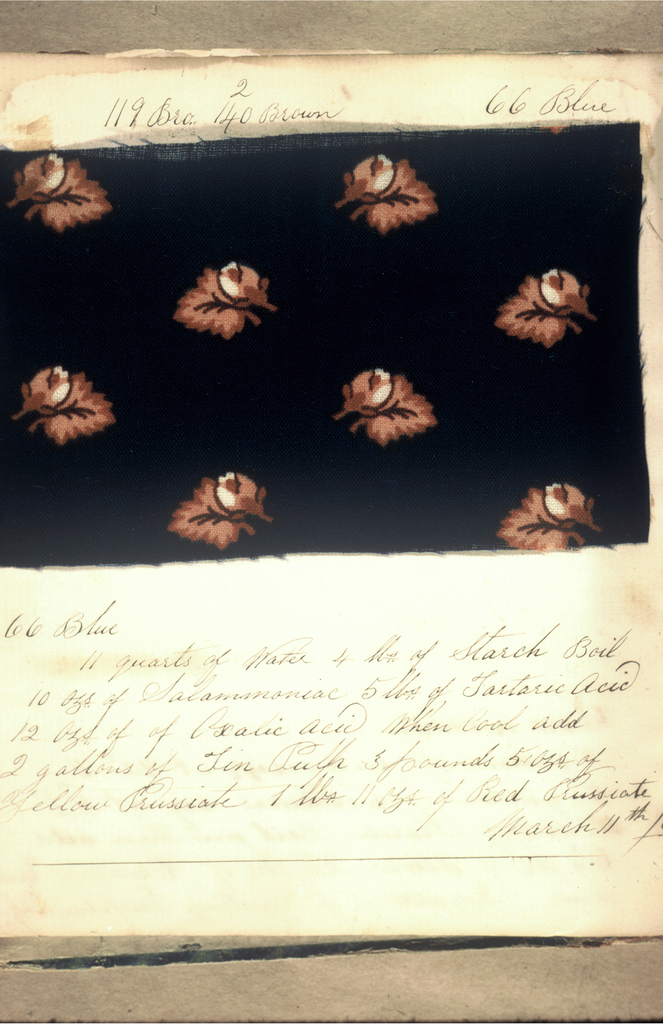 2
119 Bro. 40 Brown 66 Blue
66 Blue
11 quarts of Water 4 lbs of Starch Boil
10 ozs of Salammoniac 5 lbs of Tartaric Acid
12 ozs of of Oxalic acid When Cool add
2 gallons of Tin Pulp 3 pounds 5 ozs of
Yellow Prussiate 1 lbs 11 ozs of Red Prussiate
March 11th